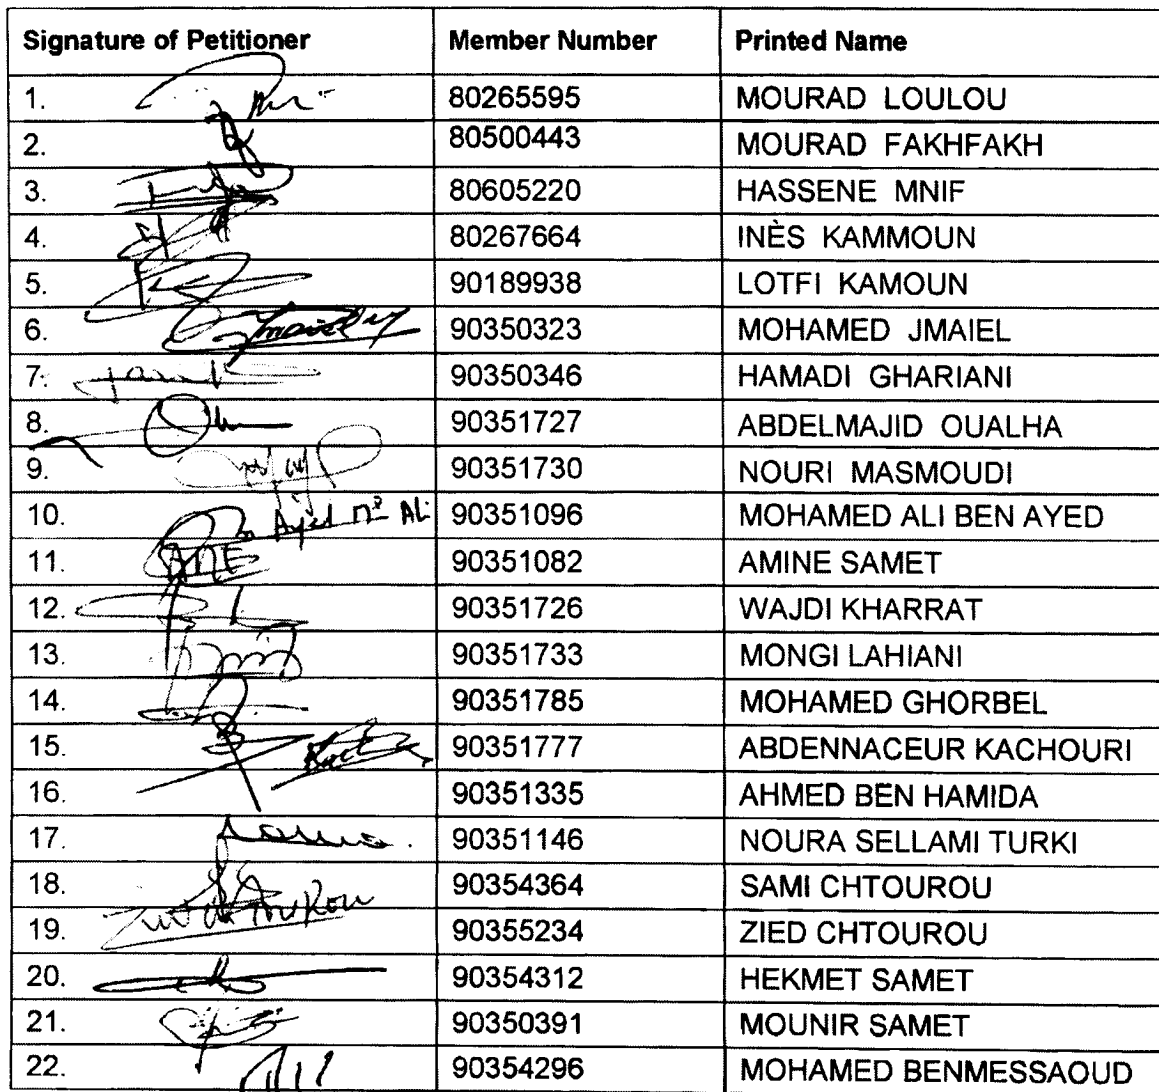 Signature of Petitioner Member Number Printed Name
1. 80265595 MOURAD LOULOU
2. 80500443 MOURAD FAKHFAKH
3. 80605220 HASSENE MNIF
4. 80267664 INÈS KAMMOUN
5. 90189938 LOTFI KAMOUN
6. 90350323 MOHAMED JMAIEL
7. 90350346 HAMADI GHARIANI
8. 90351727 ABDELMAJID OUALHA
9. 90351730 NOURI MASMOUDI
10. Ayed Md Ali 90351096 MOHAMED ALI BEN AYED
11. 90351082 AMINE SAMET
12. 90351726 WAJDI KHARRAT
13. 90351733 MONGI LAHIANI
14. 90351785 MOHAMED GHORBEL
15. 90351777 ABDENNACEUR KACHOURI
16. 90351335 AHMED BEN HAMIDA
17. 90351146 NOURA SELLAMI TURKI
18. 90354364 SAMI CHTOUROU
19. 90355234 ZIED CHTOUROU
20. 90354312 HEKMET SAMET
21. 90350391 MOUNIR SAMET
22. 90354296 MOHAMED BENMESSAOUD